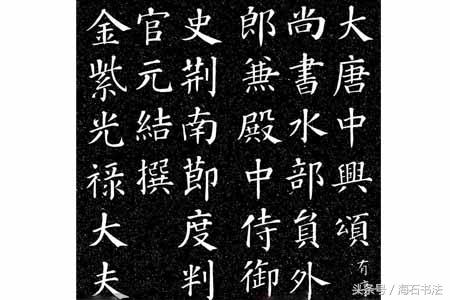 大唐中興頌 有
尚書水部員外
郎兼殿中侍御
史荆南節度判
官元結撰
金紫光禄大夫
头条号 / 海石书法